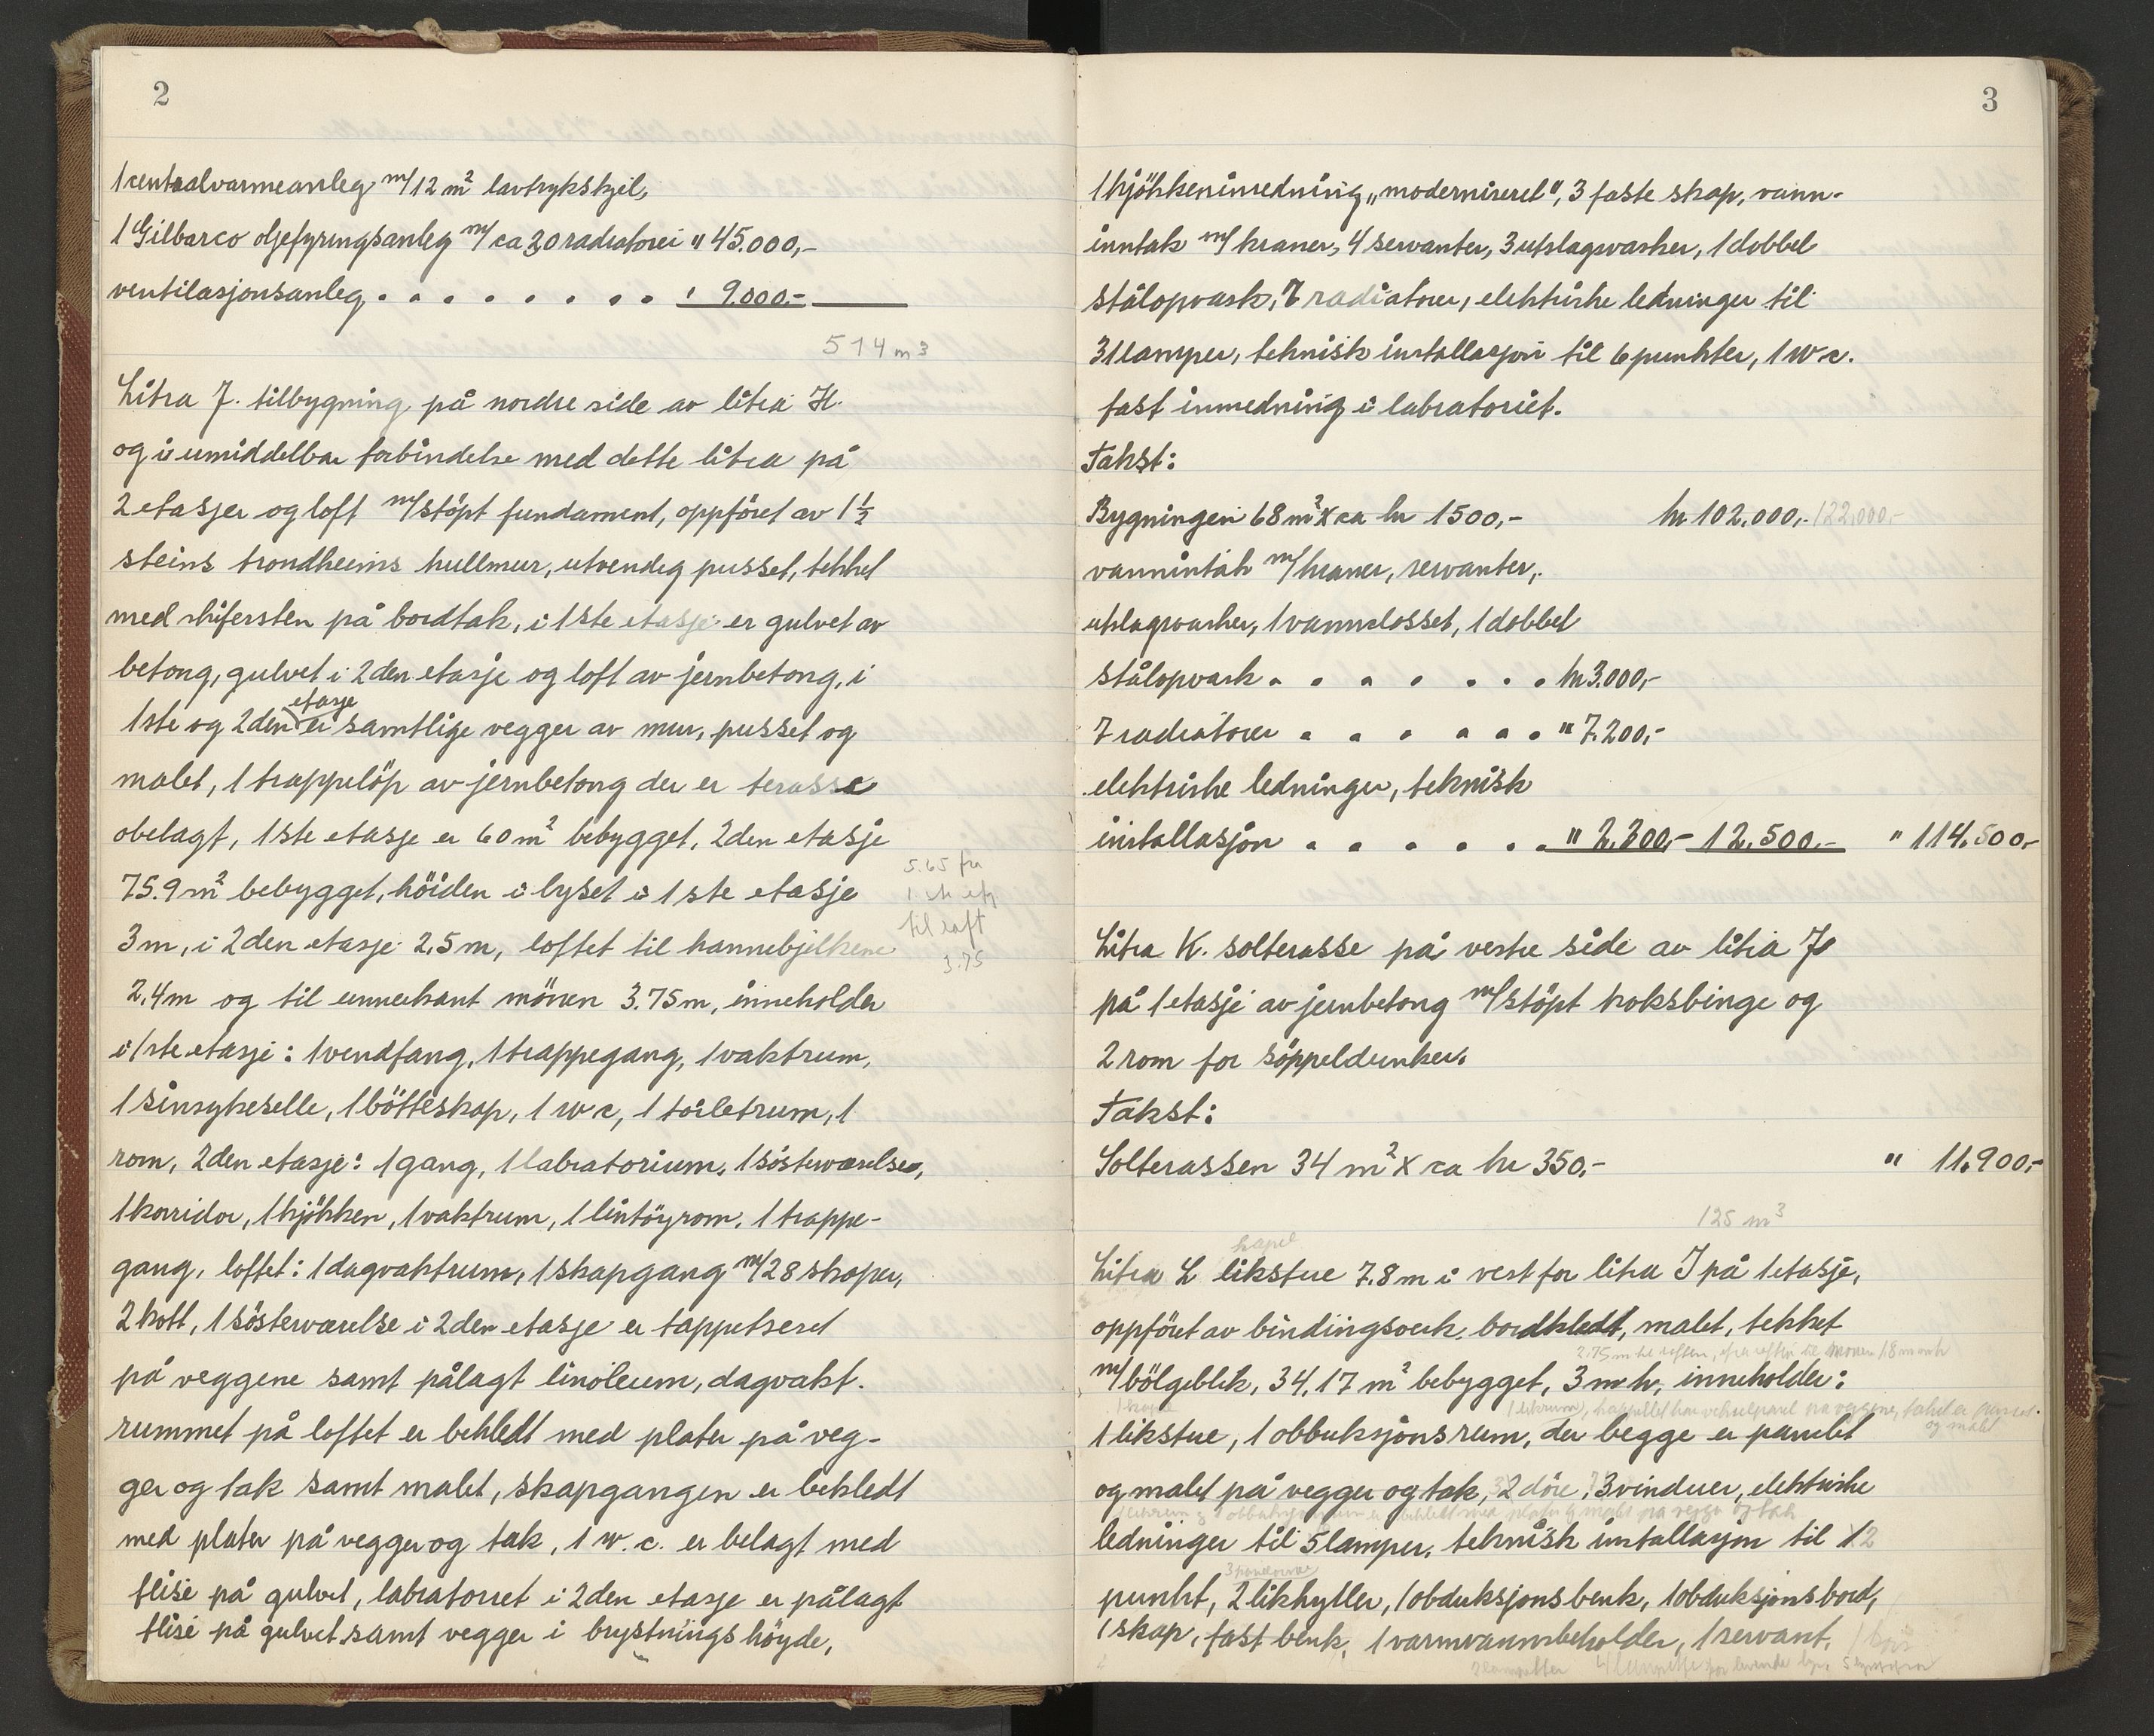 2
1 centralvarmeanleg m/ 12 m² lavtrykskjel,
1 Gilbarco oljefyringsanleg m/ ca 30 radiatorer " 45.000,-
ventilasjonsanleg . . . . . . . . ' 9.000.-
514 m3
Litra J. tilbygning på nordre side av litra H.
og i umiddelbar forbindelse med dette litra på
2 etasjer og loft m/ støpt fundament, oppföret av 1½
steins trondheims hullmur, utvendig pusset, tekket
med skifersten på bordtak, i 1ste etasje er gulvet av
betong, gulvet i 2den etasje og loft av jernbetong, i
etasje
1ste og 2den er samtlige vegger av mur, pusset og
malet, 1 trappelöp av jernbetong der er terasse
obelagt, 1ste etasje er 60 m² bebygget, 2den etasje
5.65 fra
75.9 m² bebygget, höiden i lyset i 1ste etasje
til loft
3 m, i 2den etasje 2,5 m, loftet til hannebjelkene
3.75
2,4 m og til unnerkant mönen 3.75 m, inneholder
i 1ste etasje: 1 vendfang, 1 trappegang, 1 vaktrum,
1 sinsykeselle, 1 bötteskap, 1 w c, 1 toiletrum, 1
rom, 2den etasje: 1 gang, 1 labratorium, 1 sösterværelse,
1 korridor, 1 kjökken, 1 vaktrum, 1 lintöyrom, 1 trappe-
gang, loftet: 1 dagvaktrum, 1 skapgang m/ 28 skaper,
2 kott, 1 sösterværelse i 2den etasje er tappetseret
på veggene samt pålagt linoleum, dagvakt.
rummet på loftet er bekledt med plater på veg-
ger og tak samt malet, skapgangen er bekledt
med plater på vegger og tak, 1 w. c. er belagt med
flise på gulvet, labratoriet i 2den etasje er pålagt
flise på gulvet samt vegger i brystnings höyde,
3
1 kjökkeninredning „moderniseret", 3 faste skap, vann-
inntak m/ kraner, 4 servanter, 3 utslagsvasker, 1 dobbel
stålopvask, 7 radiatorer, elektriske ledninger til
31 lamper, teknisk installasjon til 6 punkter, 1 w c.
fast innredning i labratoriet.
Takst:
Bygningen 68 m² x ca kr 1500,- kr 102.000,- 122.000,-
vannintak m/ kraner, servanter,
utslagsvasker, 1 vannclosset, 1 dobbel
stålopvask . . . . . . . kr 3.000,-
7 radiatorer . . . . . . " 7.200,-
elektriske ledninger, teknisk
installasjon . . . . . . " 2.300,- 12.500.- " 114.500,-
Litra K. solterasse på vestre side av litra J
på 1 etasje av jernbetong m/ støpt koksbinge og
2 rom for söppeldunker.
Takst:
Solterassen 34 m² x ca kr 350,- " 11.900,-
125 m3
kapel
Litra L likstue 7.8 m i vest for litra J på 1 etasje,
oppföret av bindingsverk, bordkledt, malet, tekket
m/ bölgeblik, 34,17 m² bebygget, 3 m h, inneholder:
og malt
1 likstue, 1 obbuksjonsrum, der begge er panelet
og malet på vegger og tak, 2 döre, 3 vinduer, elektriske
ledninger til 5 lamper, teknisk installasjon til 12
punkt, 2 likhyller, 1 obduksjonsbenk, 1 obduksjonsbord,
1 skap, fast benk, 1 varmvannsbeholder, 1 servant,